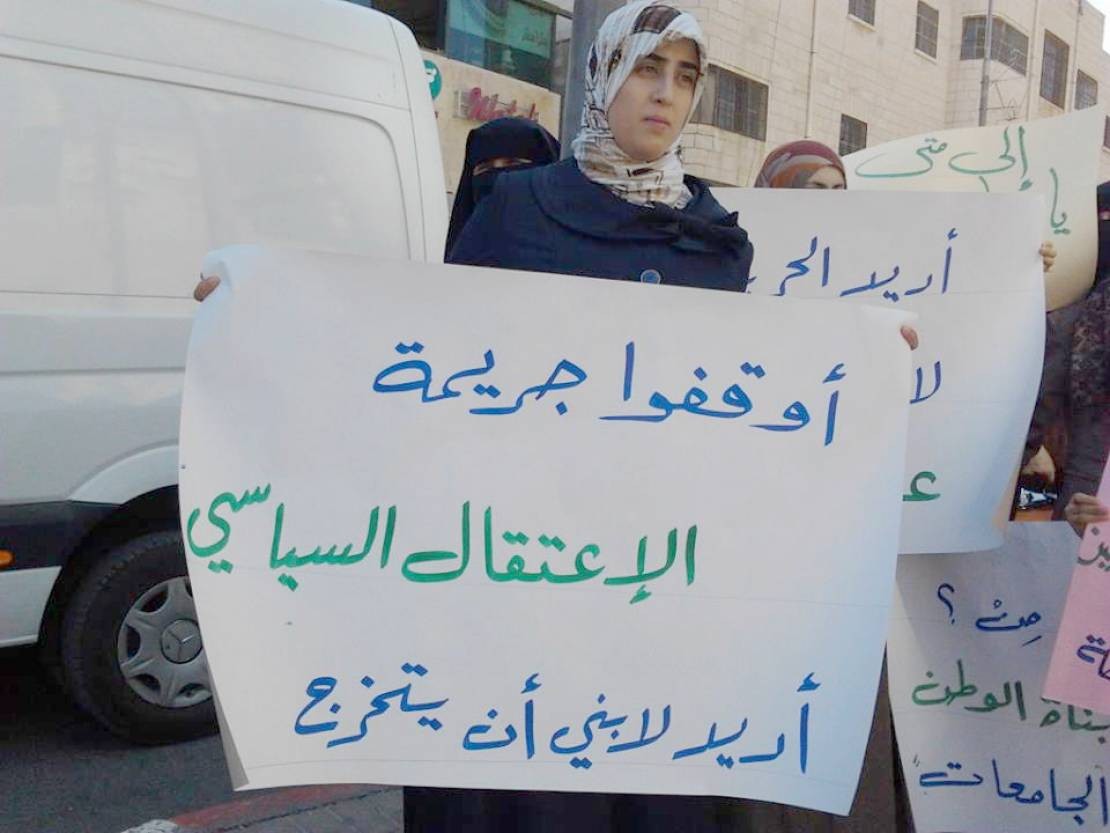 أوقفوا جريمة
الإعتقال السياسي
أريد لابني أن يتخرج
إلى متى
أريد
لا
مِنْ ؟
بناة الوطن
الجامعات"